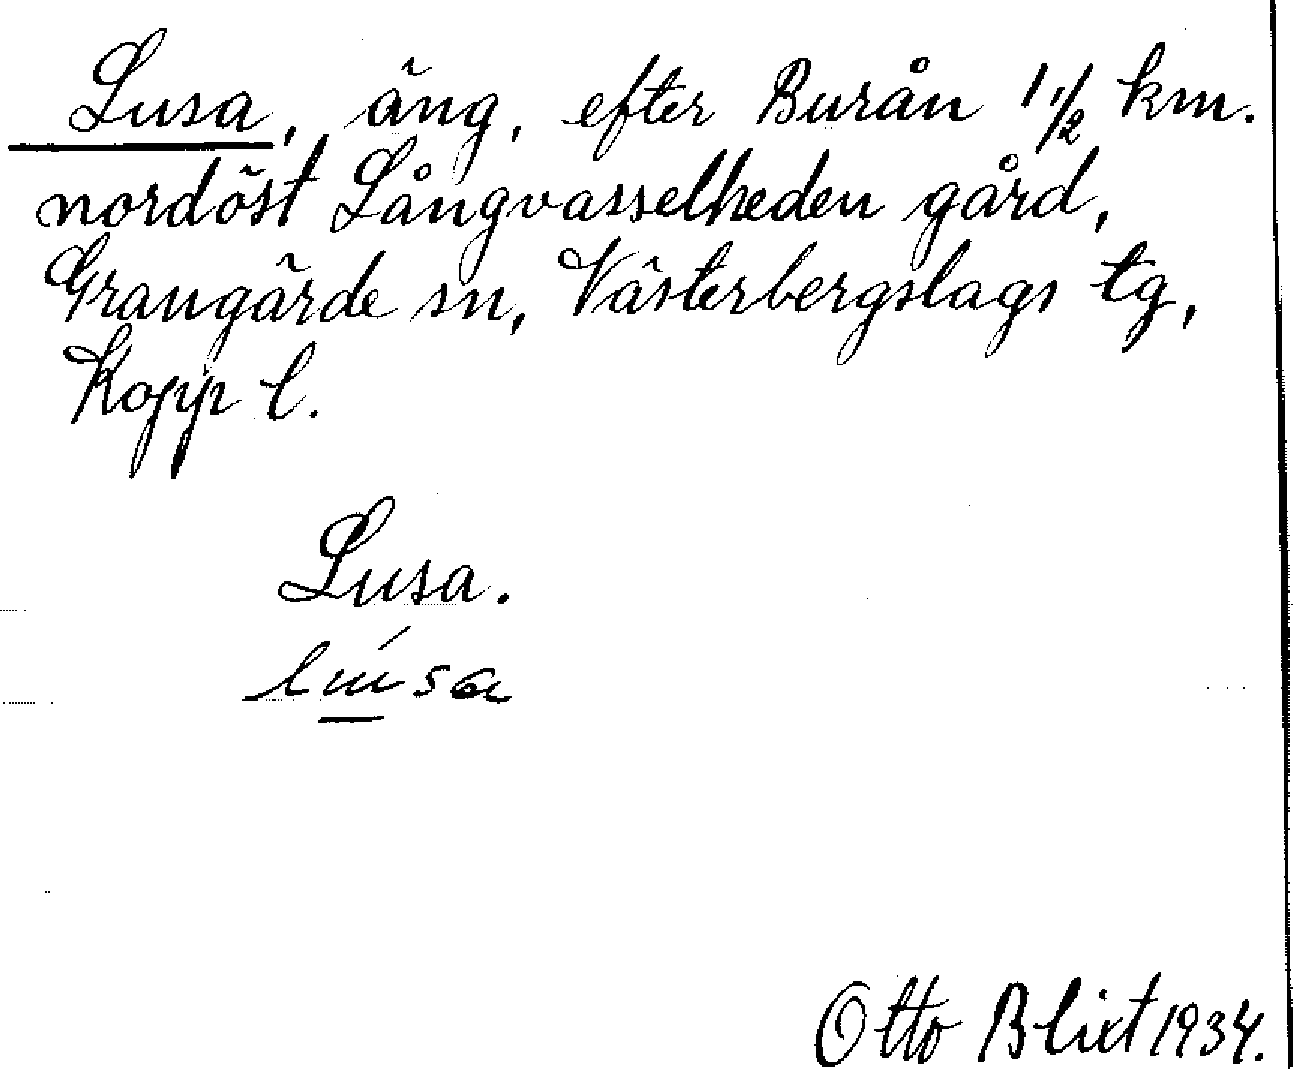 Lusa, äng, efter Burån 1 1/2 km.
nordöst Långvasselheden gård,
Grangärde sn, Västerbergslags tg,
Kopp l.
Lusa.
Otto Blixt 1934.